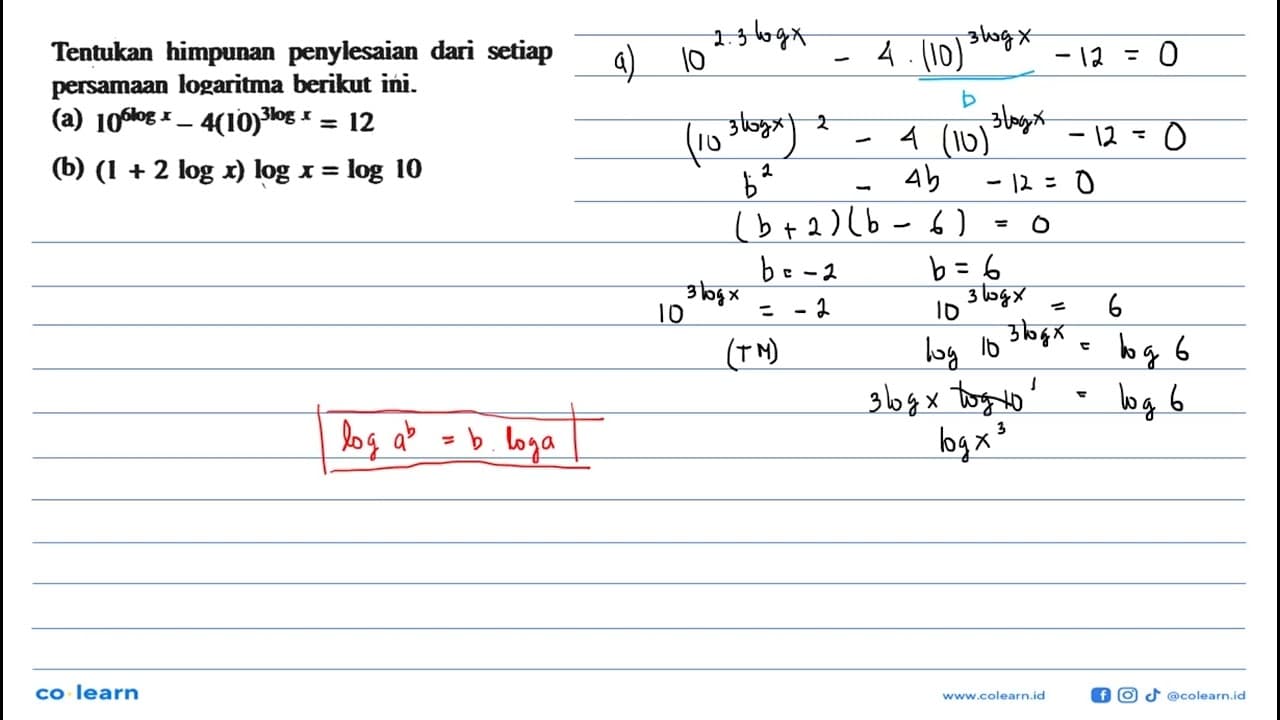 Tentukan himpunan penylesaian dari setiap
persamaan logaritma berikut ini.
(a) 10^{6log x} – 4(10)^{3log x} = 12
(b) (1 + 2 log x) log x = log 10
a) 10^{2.3logx} - 4 . (10)^{3logx} - 12 = 0
b
(10^{3logx})^2 - 4 (10)^{3logx} - 12 = 0
b^2 - 4b - 12 = 0
(b + 2)(b - 6) = 0
b = -2 b = 6
10^{3logx} = -2 10^{3logx} = 6
(TM) log 10^{3logx} = log 6
3logx log 10^1 = log 6
log x^3
log a^b = b . log a
co learn
www.colearn.id @colearn.id